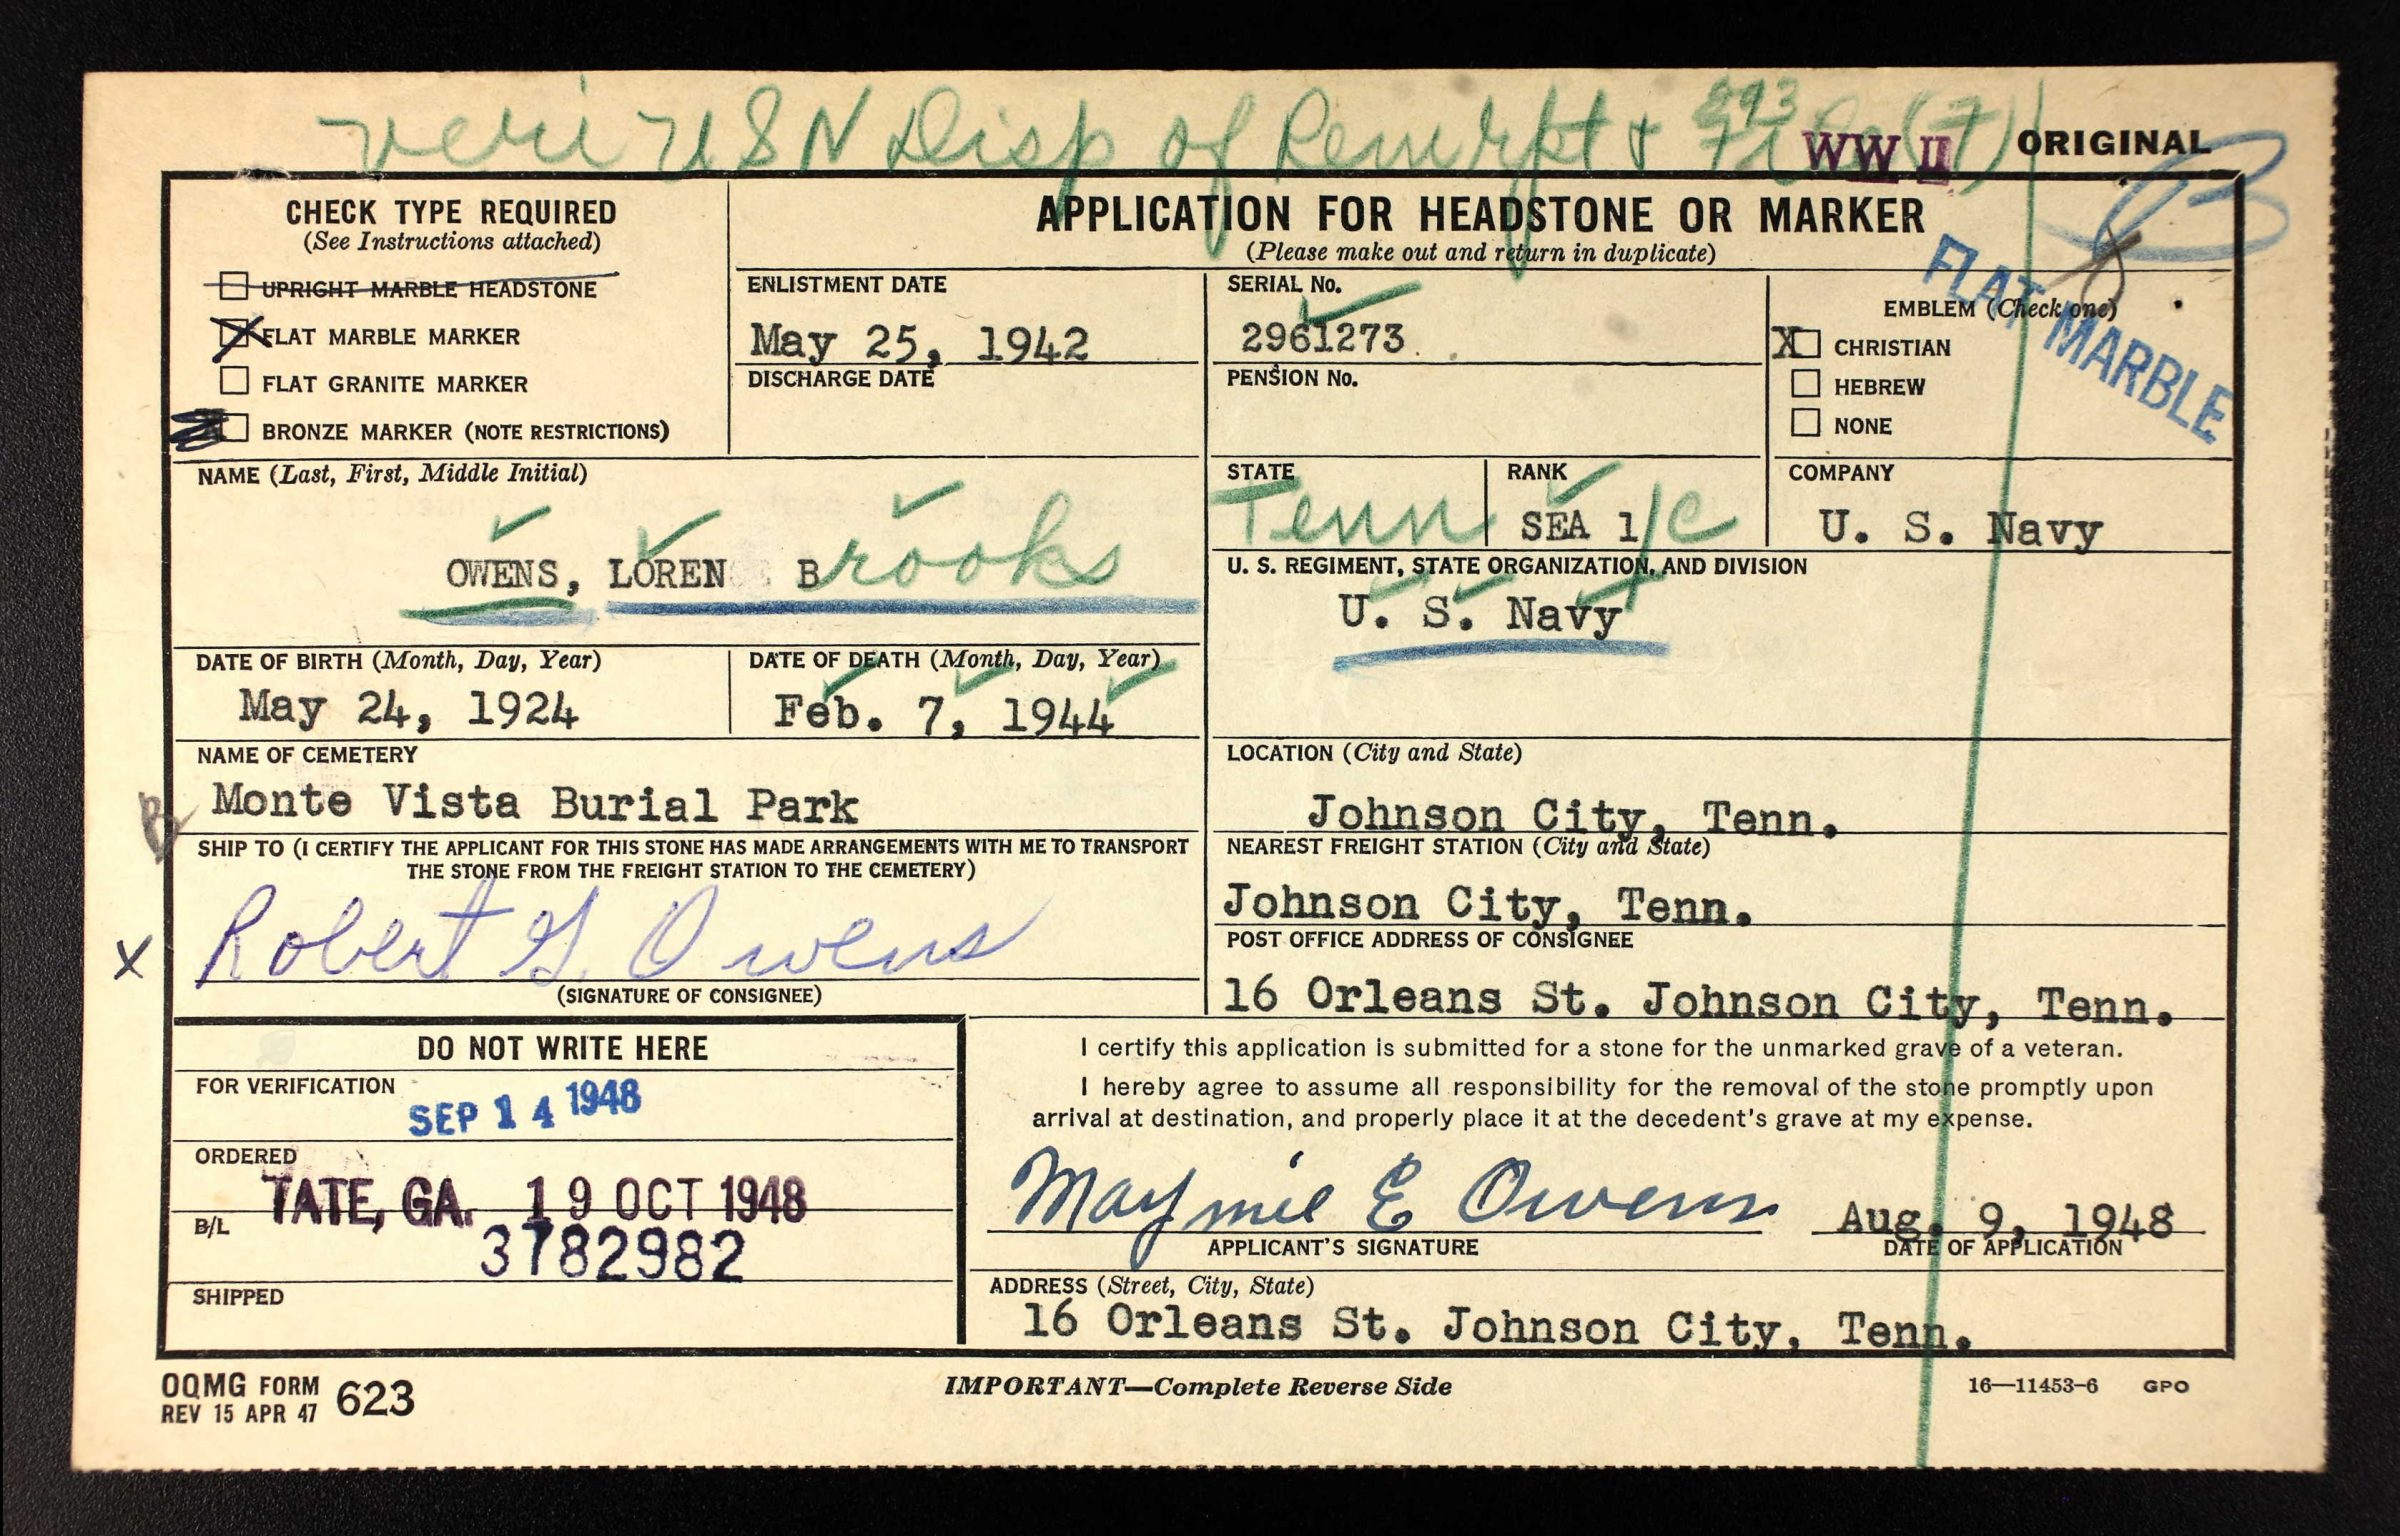 veri USN Disp of Rem rpt +
293
WW II
(7)
ORIGINAL
B
CHECK TYPE REQUIRED
(See Instructions attached)
UPRIGHT MARBLE HEADSTONE
X FLAT MARBLE MARKER
FLAT GRANITE MARKER
BRONZE MARKER (NOTE RESTRICTIONS)
APPLICATION FOR HEADSTONE OR MARKER
(Please make out and return in duplicate)
ENLISTMENT DATE
May 25, 1942
DISCHARGE DATE
SERIAL No.
2961273
PENSION No.
EMBLEM (Check one)
X CHRISTIAN
HEBREW
NONE
FLAT MARBLE
NAME (Last, First, Middle Initial)
OWENS, LOREN Brooks
STATE
Tenn
RANK
SEA 1/C
COMPANY
U. S. Navy
U. S. REGIMENT, STATE ORGANIZATION, AND DIVISION
U. S. Navy
DATE OF BIRTH (Month, Day, Year)
May 24, 1924
DATE OF DEATH (Month, Day, Year)
Feb. 7, 1944
NAME OF CEMETERY
Monte Vista Burial Park
LOCATION (City and State)
Johnson City, Tenn.
SHIP TO (I CERTIFY THE APPLICANT FOR THIS STONE HAS MADE ARRANGEMENTS WITH ME TO TRANSPORT
THE STONE FROM THE FREIGHT STATION TO THE CEMETERY)
X Robert G. Owens
(SIGNATURE OF CONSIGNEE)
NEAREST FREIGHT STATION (City and State)
Johnson City, Tenn.
POST OFFICE ADDRESS OF CONSIGNEE
16 Orleans St. Johnson City, Tenn.
DO NOT WRITE HERE
FOR VERIFICATION
SEP 14 1948
ORDERED
TATE, GA. 19 OCT 1948
B/L
3782982
SHIPPED
I certify this application is submitted for a stone for the unmarked grave of a veteran.
I hereby agree to assume all responsibility for the removal of the stone promptly upon
arrival at destination, and properly place it at the decedent's grave at my expense.
Maymie E Owens
Aug. 9, 1948
APPLICANT'S SIGNATURE
DATE OF APPLICATION
ADDRESS (Street, City, State)
16 Orleans St. Johnson City, Tenn.
OQMG FORM 623
REV 15 APR 47
IMPORTANT—Complete Reverse Side
16—11453-6 GPO